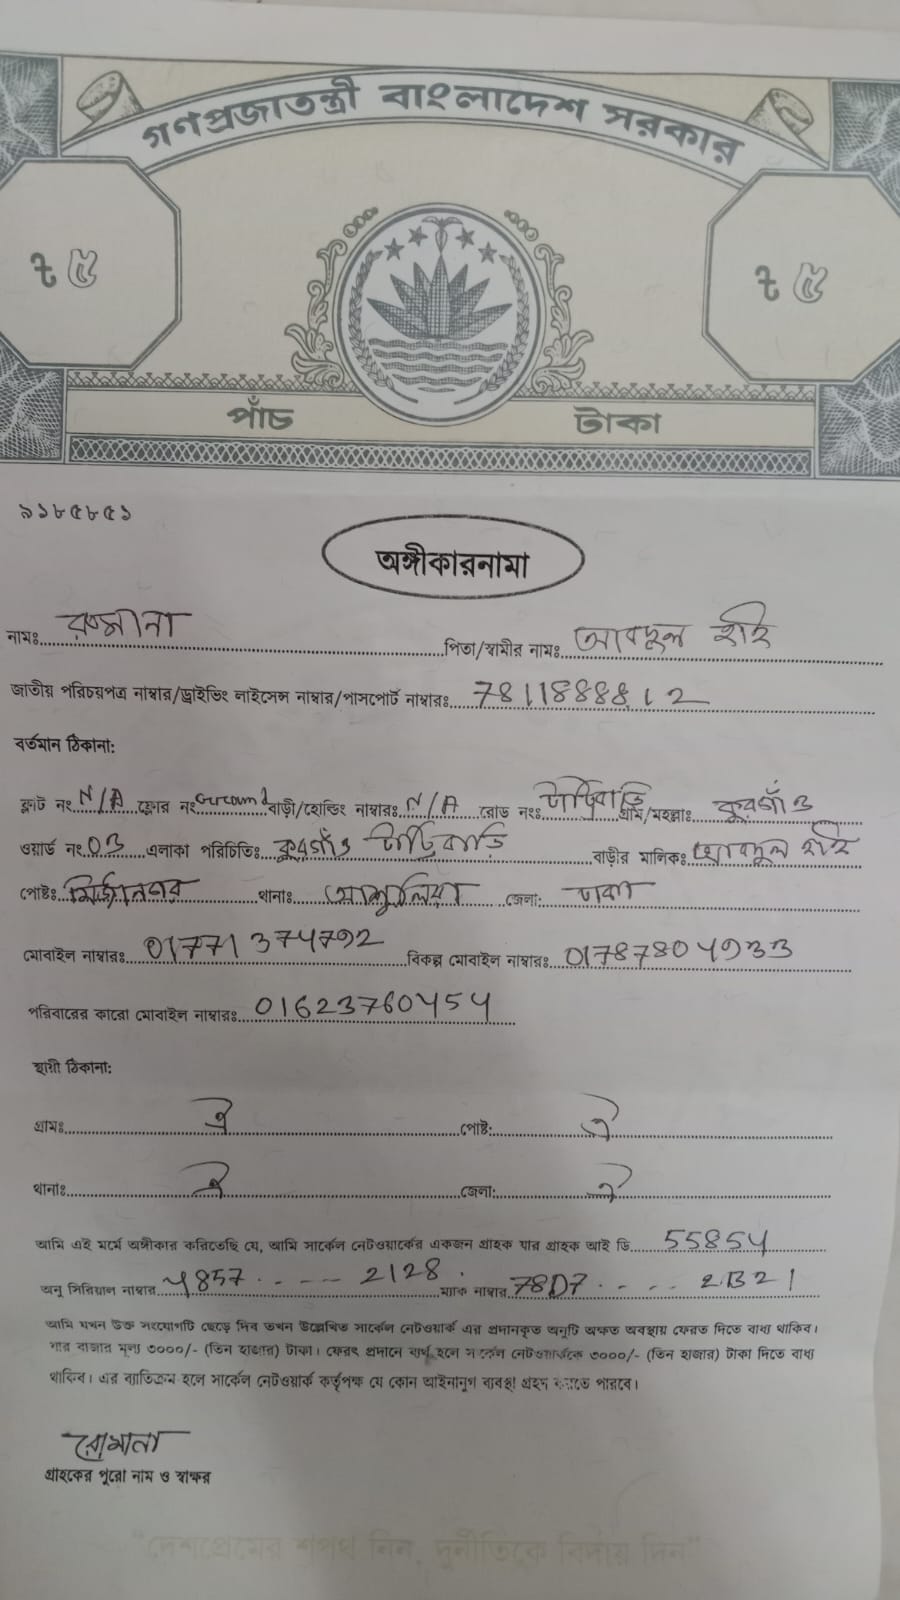 গণপ্রজাতন্ত্রী বাংলাদেশ সরকার
৳ ৫ ৳ ৫
পাঁচ টাকা
৯১৮৫৮৫১
অঙ্গীকারনামা
নামঃ রুমানা পিতা/স্বামীর নামঃ আবদুল হাই
জাতীয় পরিচয়পত্র নাম্বার/ড্রাইভিং লাইসেন্স নাম্বার/পাসপোর্ট নাম্বারঃ 7811888812
বর্তমান ঠিকানা:
ফ্লাট নং N/A ফ্লোর নং Ground বাড়ী/হোল্ডিং নাম্বারঃ N/A রোড নংঃ টাট্টিবাড়ি গ্রাম/মহল্লাঃ কুরগাঁও
ওয়ার্ড নং 03 এলাকা পরিচিতিঃ কুরগাঁও টাট্টিবাড়ি বাড়ীর মালিকঃ আবদুল হাই
পোষ্টঃ মির্জানগর থানাঃ আশুলিয়া জেলা: ঢাকা
মোবাইল নাম্বারঃ 01771374792 বিকল্প মোবাইল নাম্বারঃ 01787804933
পরিবারের কারো মোবাইল নাম্বারঃ 01623760454
স্থায়ী ঠিকানা:
গ্রামঃ ঐ পোষ্ট: ঐ
থানাঃ ঐ জেলা: ঐ
আমি এই মর্মে অঙ্গীকার করিতেছি যে, আমি সার্কেল নেটওয়ার্কের একজন গ্রাহক যার গ্রাহক আই ডি 55854
অনু সিরিয়াল নাম্বার 4857 ---- 2128 . ম্যাক নাম্বার 78D7 ---- 2B21
আমি যখন উক্ত সংযোগটি ছেড়ে দিব তখন উল্লেখিত সার্কেল নেটওয়ার্ক এর প্রদানকৃত অনুটি অক্ষত অবস্থায় ফেরত দিতে বাধ্য থাকিব।
যার বাজার মূল্য ৩০০০/- (তিন হাজার) টাকা। ফেরৎ প্রদানে ব্যর্থ হলে সার্কেল নেটওয়ার্ককে ৩০০০/- (তিন হাজার) টাকা দিতে বাধ্য
থাকিব। এর ব্যতিক্রম হলে সার্কেল নেটওয়ার্ক কর্তৃপক্ষ যে কোন আইনানুগ ব্যবস্থা গ্রহণ করতে পারবে।
রোমানা
গ্রাহকের পুরো নাম ও স্বাক্ষর
"দেশপ্রেমের শপথ নিন, দুর্নীতিকে বিদায় দিন"